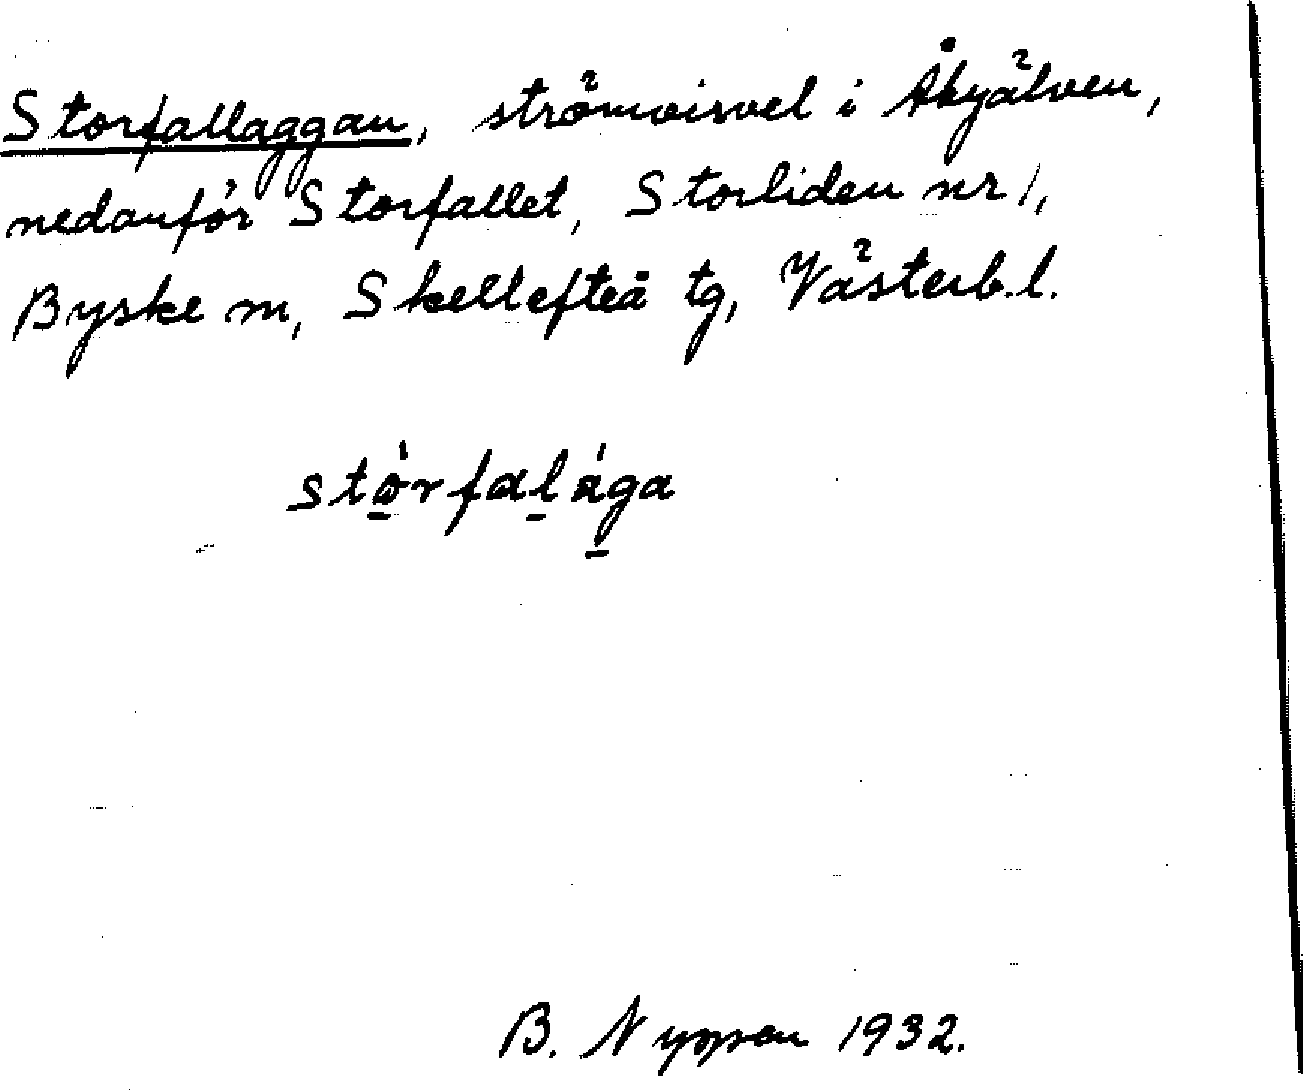 Storfallaggan, strömvirvel i Åbyälven,
nedanför Storfallet, Storliden nr 1,
Byske sn, Skellefteå tg, Västerb. l.
stórfalága
B. Nyman 1932.